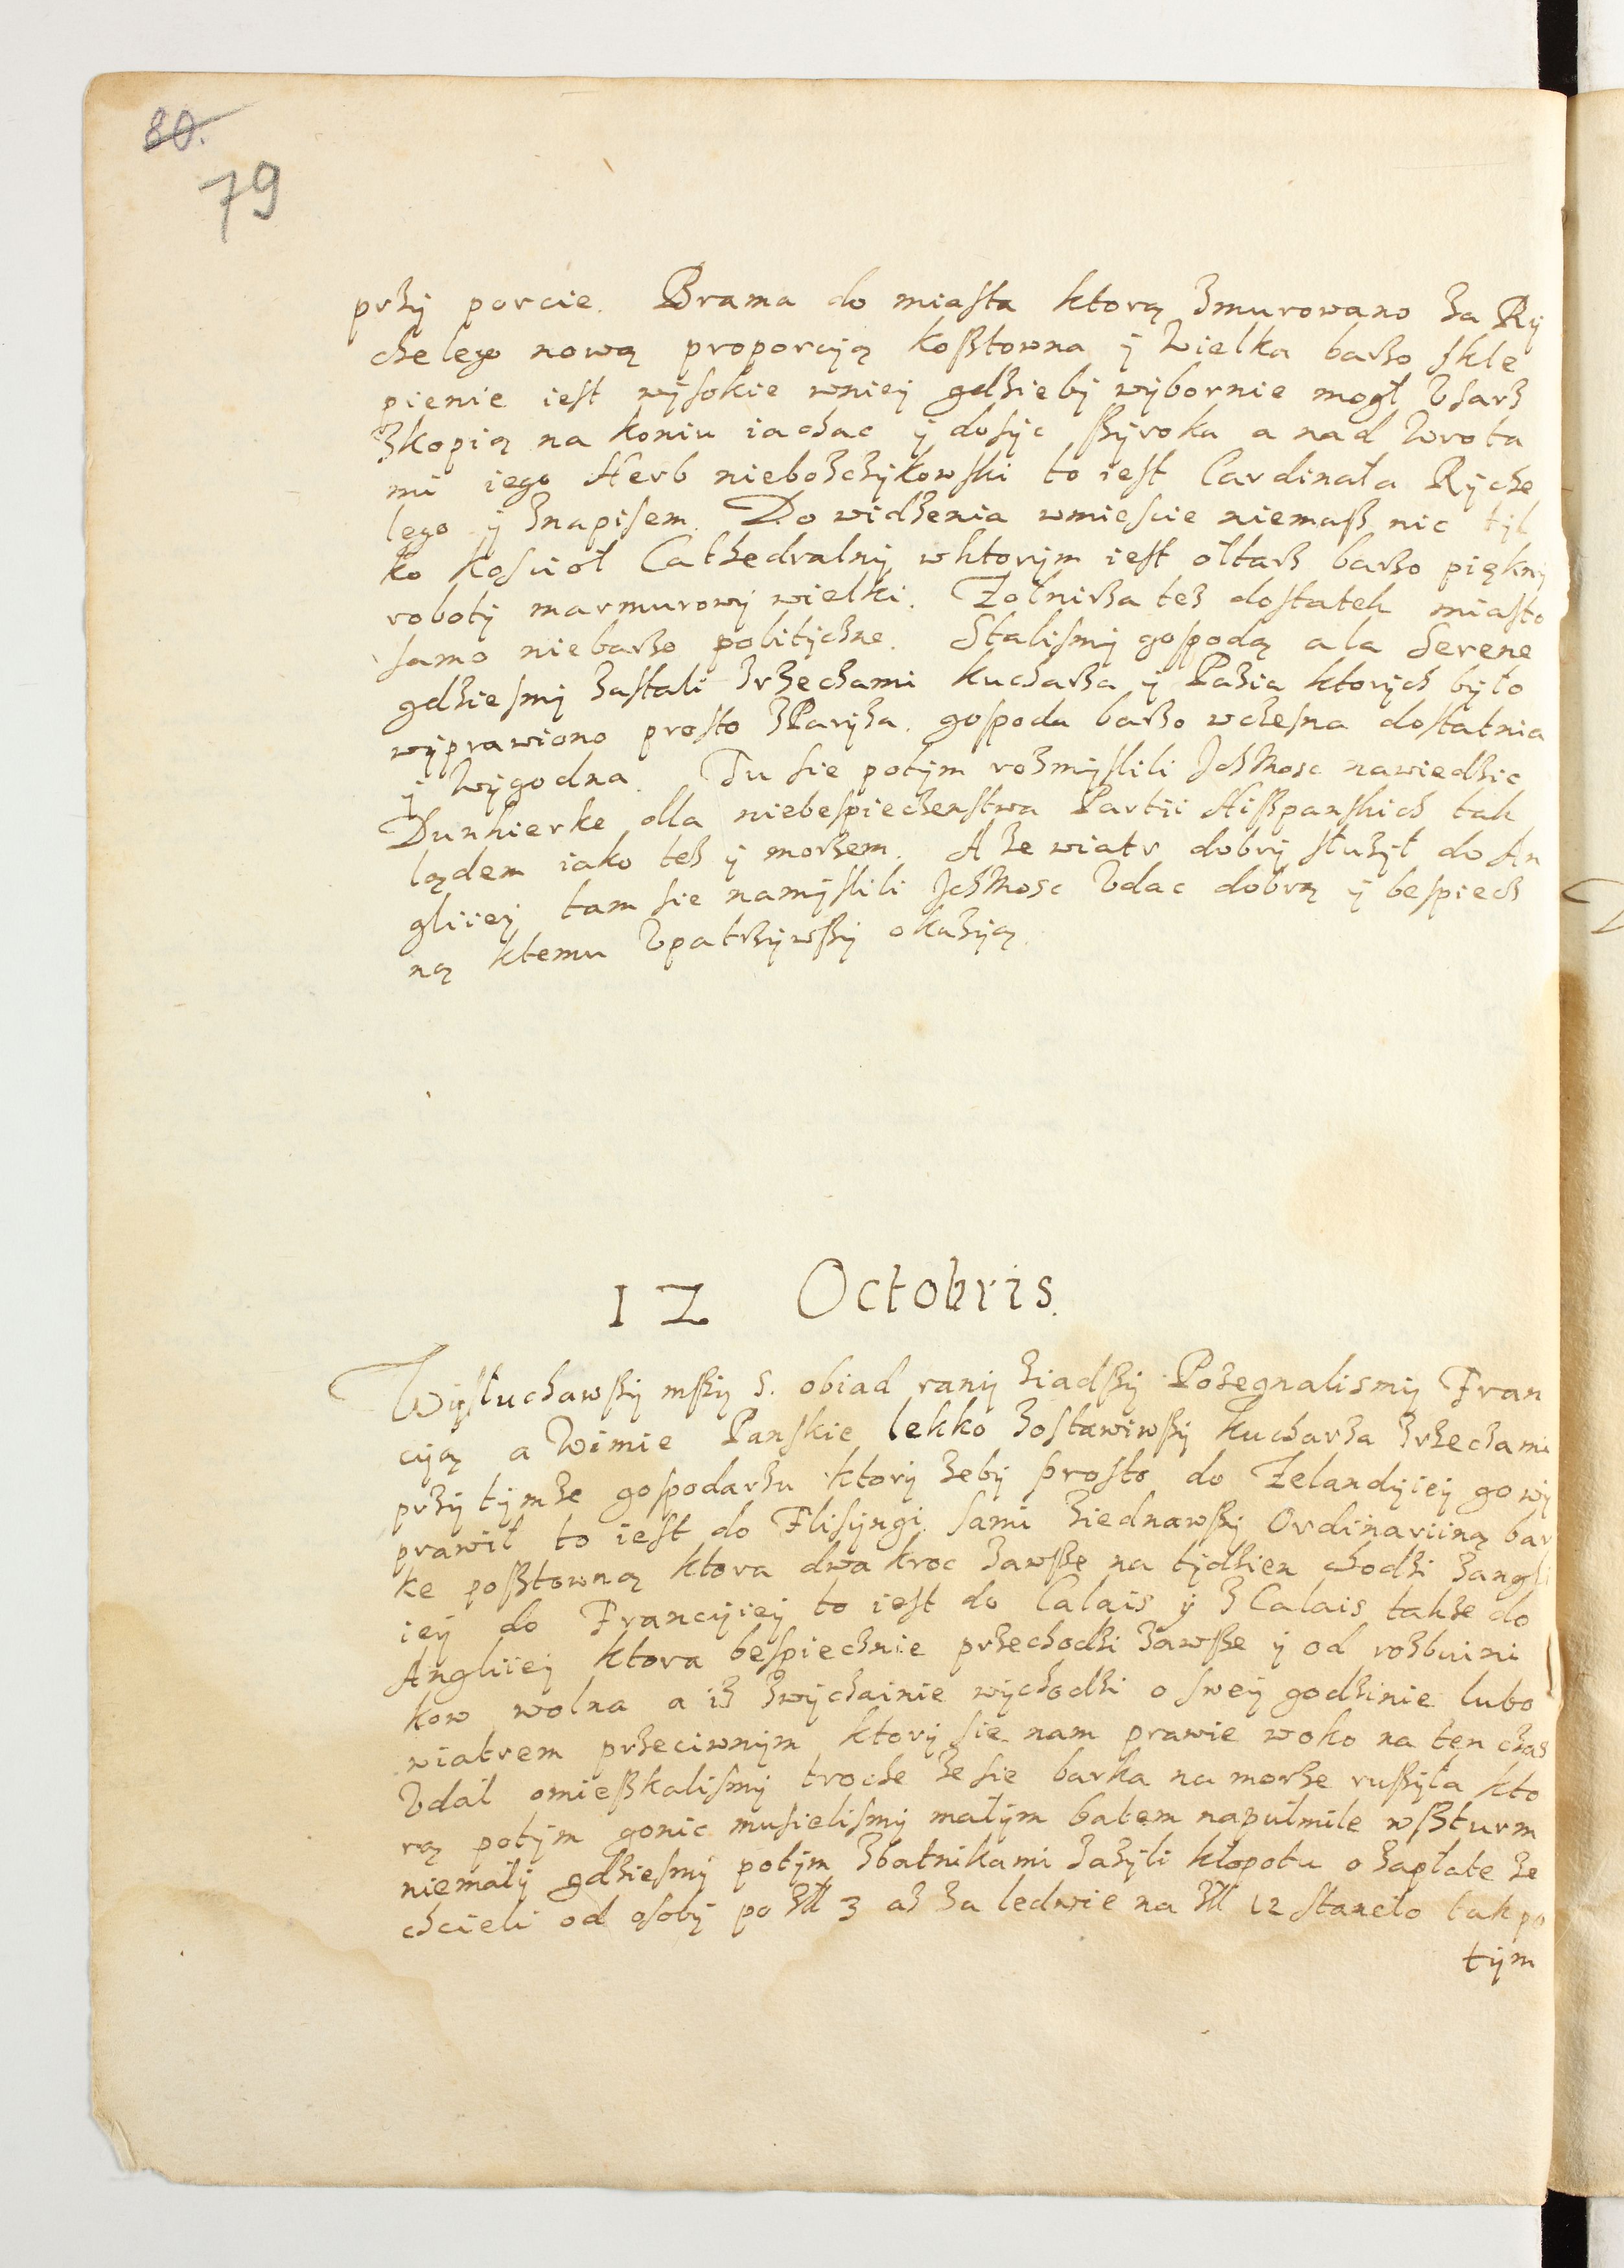 80.
79
przÿ porcie. Brama do miasta ktorą zmurowano za Rÿ
chelego nową proporcÿą kosztowna ÿ Wielka barzo skle
pienie iest wÿsokie wnieÿ gdziebÿ wÿbornie mogł Vsarz
zkopią na koniu iachac ÿ dosÿc szÿroka a nad Wrota
mi iego Herb niebozczÿkowski to iest Cardinała Rÿche
lego ÿ znapisem. Do widzenia wmiescie niemasz nic tÿl
ko kosciół Cathedralnÿ wktorÿm iest ołtarz barzo pięknÿ
robotÿ marmurowÿ wielki. Zołnirza tez dostatek miasto
samo niebarzo politÿczne. Stalismÿ gospodą a la Serene
gdziesmÿ zastali zrzechami kucharza ÿ Pazia ktorÿch bÿło
wÿprawiono prosto zParÿza. gospoda barzo wczesna dostatnia
ÿ Wÿgodna. Tu sie potÿm rozmÿslili JchMosc nawiedzic
Dunkierke dla niebespieczenstwa Partii Hiszpanskich tak
lądem iako tez ÿ morzem. A ze wiatr dobrÿ słuzÿł do An
gliieÿ tam sie namÿslili JchMosc Vdac dobrą ÿ bespiecz
ną ktemu Vpatrzÿwszÿ okazÿą.
12 Octobris.
Wÿsłuchawszÿ mszÿ s. obiad ranÿ ziadszÿ Pozegnalismÿ Fran
cÿą a Wimie Panskie lekko zostawiwszÿ kucharza zrzechami
przÿ tÿmze gospodarzu ktorÿ zebÿ prosto do Zelandÿieÿ go wÿ
prawił to iest do Flisÿngi. sami ziednawszÿ Ordinariiną bar
ke posztowną ktora dwa kroc zawsze na tÿdzien chodzi zangli
ieÿ do Francÿieÿ to iest do Calais ÿ z Calais takze do
Angliieÿ ktora bespiecznie przechodzi zawsze ÿ od rozbuini
kow wolna a iz zwÿczainie wÿchodzi o sweÿ godzinie lubo
wiatrem przeciwnÿm ktorÿ sie nam prawie woko na ten czas
Vdał omieszkalismÿ troche ze sie barka na morze ruszÿła kto
rą potÿm gonic musielismÿ małÿm batem napułmile wszturm
niemałÿ gdziesmÿ potÿm zbatnikami zazÿli kłopotu o zapłate ze
chcieli od osobÿ po zł 3 az za ledwie na zł 12 staneło tak po
tÿm